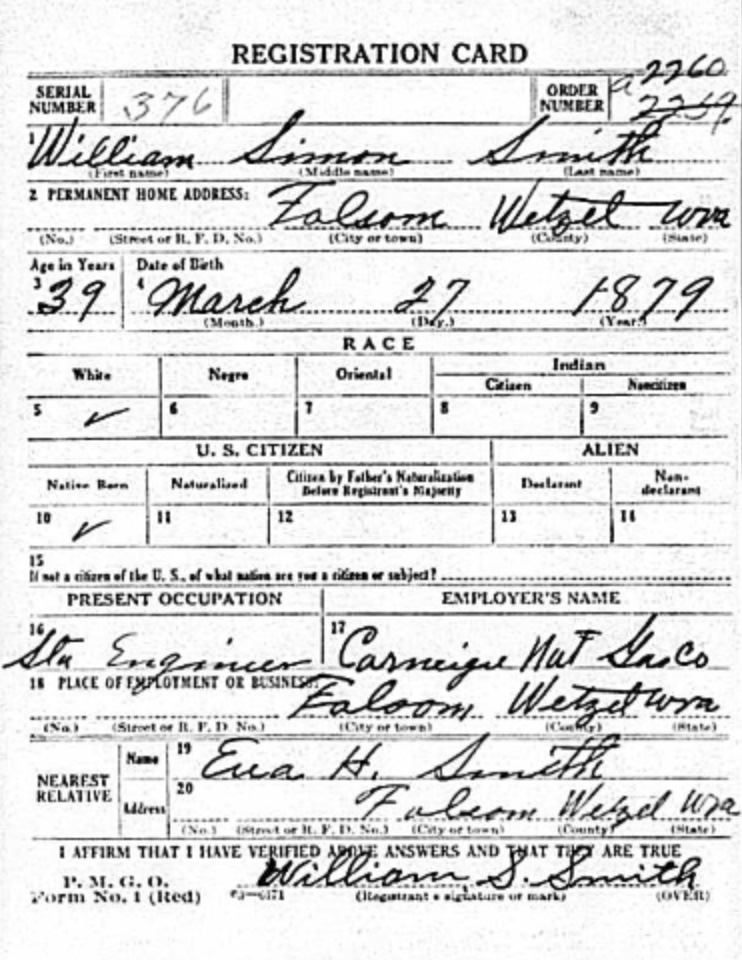 REGISTRATION CARD
SERIAL NUMBER 376 ORDER NUMBER a 2260
2259
1 William Simon Smith
(First name) (Middle name) (Last name)
2 PERMANENT HOME ADDRESS: Folsom Wetzel Wva
(No.) (Street or R. F. D. No.) (City or town) (County) (State)
Age in Years Date of Birth
3 39 4 March 27 1879
(Month.) (Day.) (Year.)
RACE
White Negro Oriental Indian
Citizen Noncitizen
5 ✓ 6 7 8 9
U. S. CITIZEN ALIEN
Native Born Naturalized Citizen by Father's Naturalization Before Registrant's Majority Declarant Non-declarant
10 ✓ 11 12 13 14
15
If not a citizen of the U. S., of what nation are you a citizen or subject?
PRESENT OCCUPATION EMPLOYER'S NAME
16 Sta Engineer 17 Carneigie Nat Gas Co
18 PLACE OF EMPLOYMENT OR BUSINESS: Folsom Wetzel Wva
(No.) (Street or R. F. D. No.) (City or town) (County) (State)
NEAREST RELATIVE Name 19 Eva H. Smith
Address 20 Folsom Wetzel Wva
(No.) (Street or R. F. D. No.) (City or town) (County) (State)
I AFFIRM THAT I HAVE VERIFIED ABOVE ANSWERS AND THAT THEY ARE TRUE
P. M. G. O. William S. Smith
Form No. 1 (Red) (Registrant's signature or mark) (OVER)